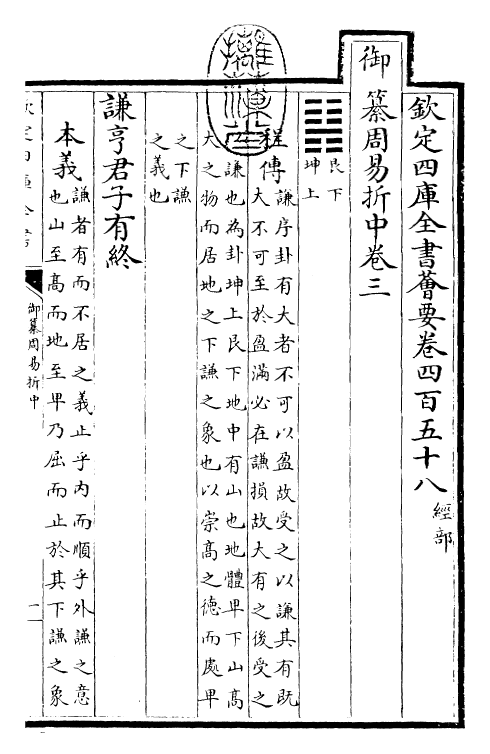 欽定四庫全書薈要卷四百五十八
經部
御
纂周易折中卷三
艮下
坤上
程傳
謙序卦有大者不可以盈故受之以謙其有既
大不可至於盈滿必在謙損故大有之後受之
以謙也為卦坤上艮下地中有山也地體卑下山高
大之物而居地之下謙之象也以崇高之德而處卑
之下謙
之義也
謙亨君子有終
本義
謙者有而不居之義止乎内而順乎外謙之意
也山至高而地至卑乃屈而止於其下謙之象
欽定四庫全書
御纂周易折中
一